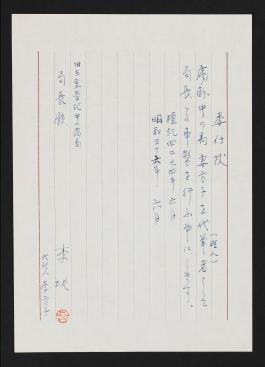 委任状
病臥中の為妻方子を代筆者として
(理人)
司長との事務を行ふ事にします。
檀紀四二九四年 六月
昭和三十六年 六月
旧王室財産事務総局
司長殿
李垠
代理人 李方子